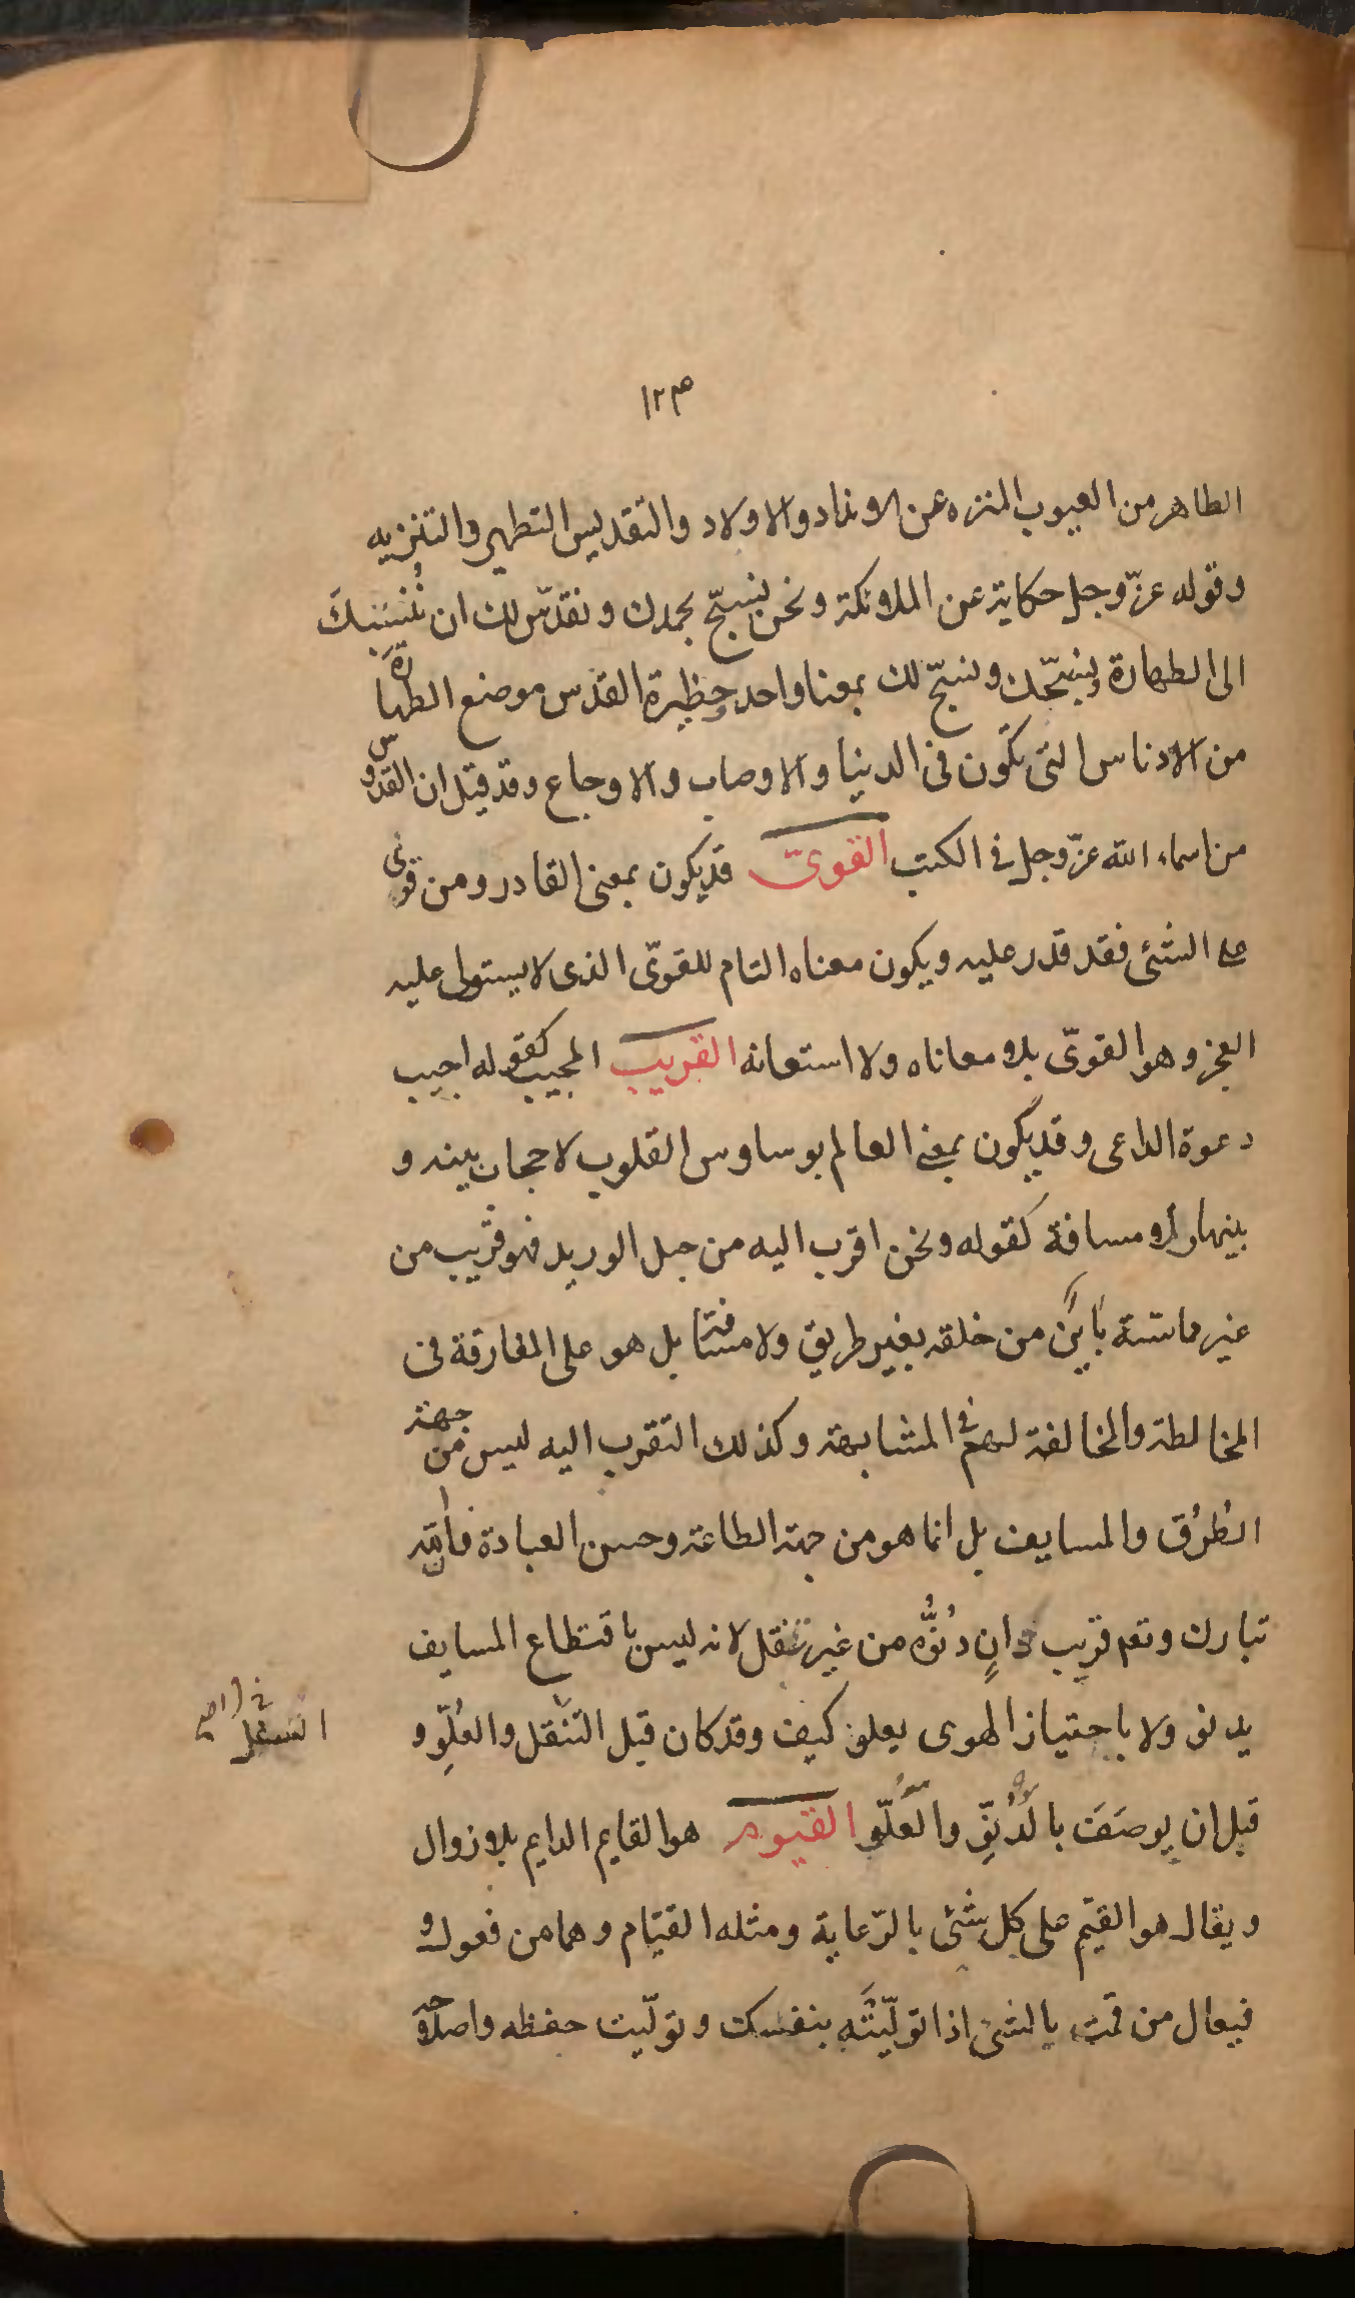 ١٢٣
الطاهر من العيوب المنزه عن الانداد والاولاد والتقديس التطهير والتنزيه
وقوله عزّ وجل حكاية عن الملائكة ونحن نسبّح بحمدك ونقدّس لك ان نُنسبكَ
الى الطهارة ونسبّحك ونسبّح لك بمعنا واحد وحظيرة القدس موضع الطهارة
من الادناس التى تكون فى الدنيا والاوصاب والاوجاع وقد قيل ان القدوس
من اسماء الله عزّ وجل فى الكتب القوىّ قد يكون بمعنى القادر ومن قوى
على الشئى فقد قدر عليه ويكون معناه التام للقوىّ الذى لا يستولى عليه
العجز وهو القوىّ بلا معاناه ولا استعانه القريب المجيب كقوله اجيب
دعوة الداعى وقد يكون بمعنى العالم بوساوس القلوب لا حجاب بينه و
بينها ولا مسافة كقوله ونحن اقرب اليه من حبل الوريد فهو قريب من
غير ماسّة باين من خلقه بغير طريق ولا مسافة بل هو على المفارقة فى
المخالطة والمخالفة لهم فى المشابهة وكذلك التقرب اليه ليس من جهة
الطُرُق والمسايف بل انما هو من جهة الطاعة وحسن العبادة فالله
تبارك وتعم قريب دانٍ دنُوُّه من غير تنقل لانه ليس باقتطاع المسايف
يدنو ولا باجتياز الهوى يعلو كيف وقد كان قبل التنقل والعُلِوّ و
التسفل
قبل ان يوصَفَ بالدُنِوّ والعُلّو القيوم هو القايم الدايم بلا زوال
ويقال هو القيّم على كل شئى بالرّعاية ومثله القيّام وهما من فعول و
فيعال من قمت بالشئ اذا توليّتَه بنفسك وتولّيت حفظه واصلاحه